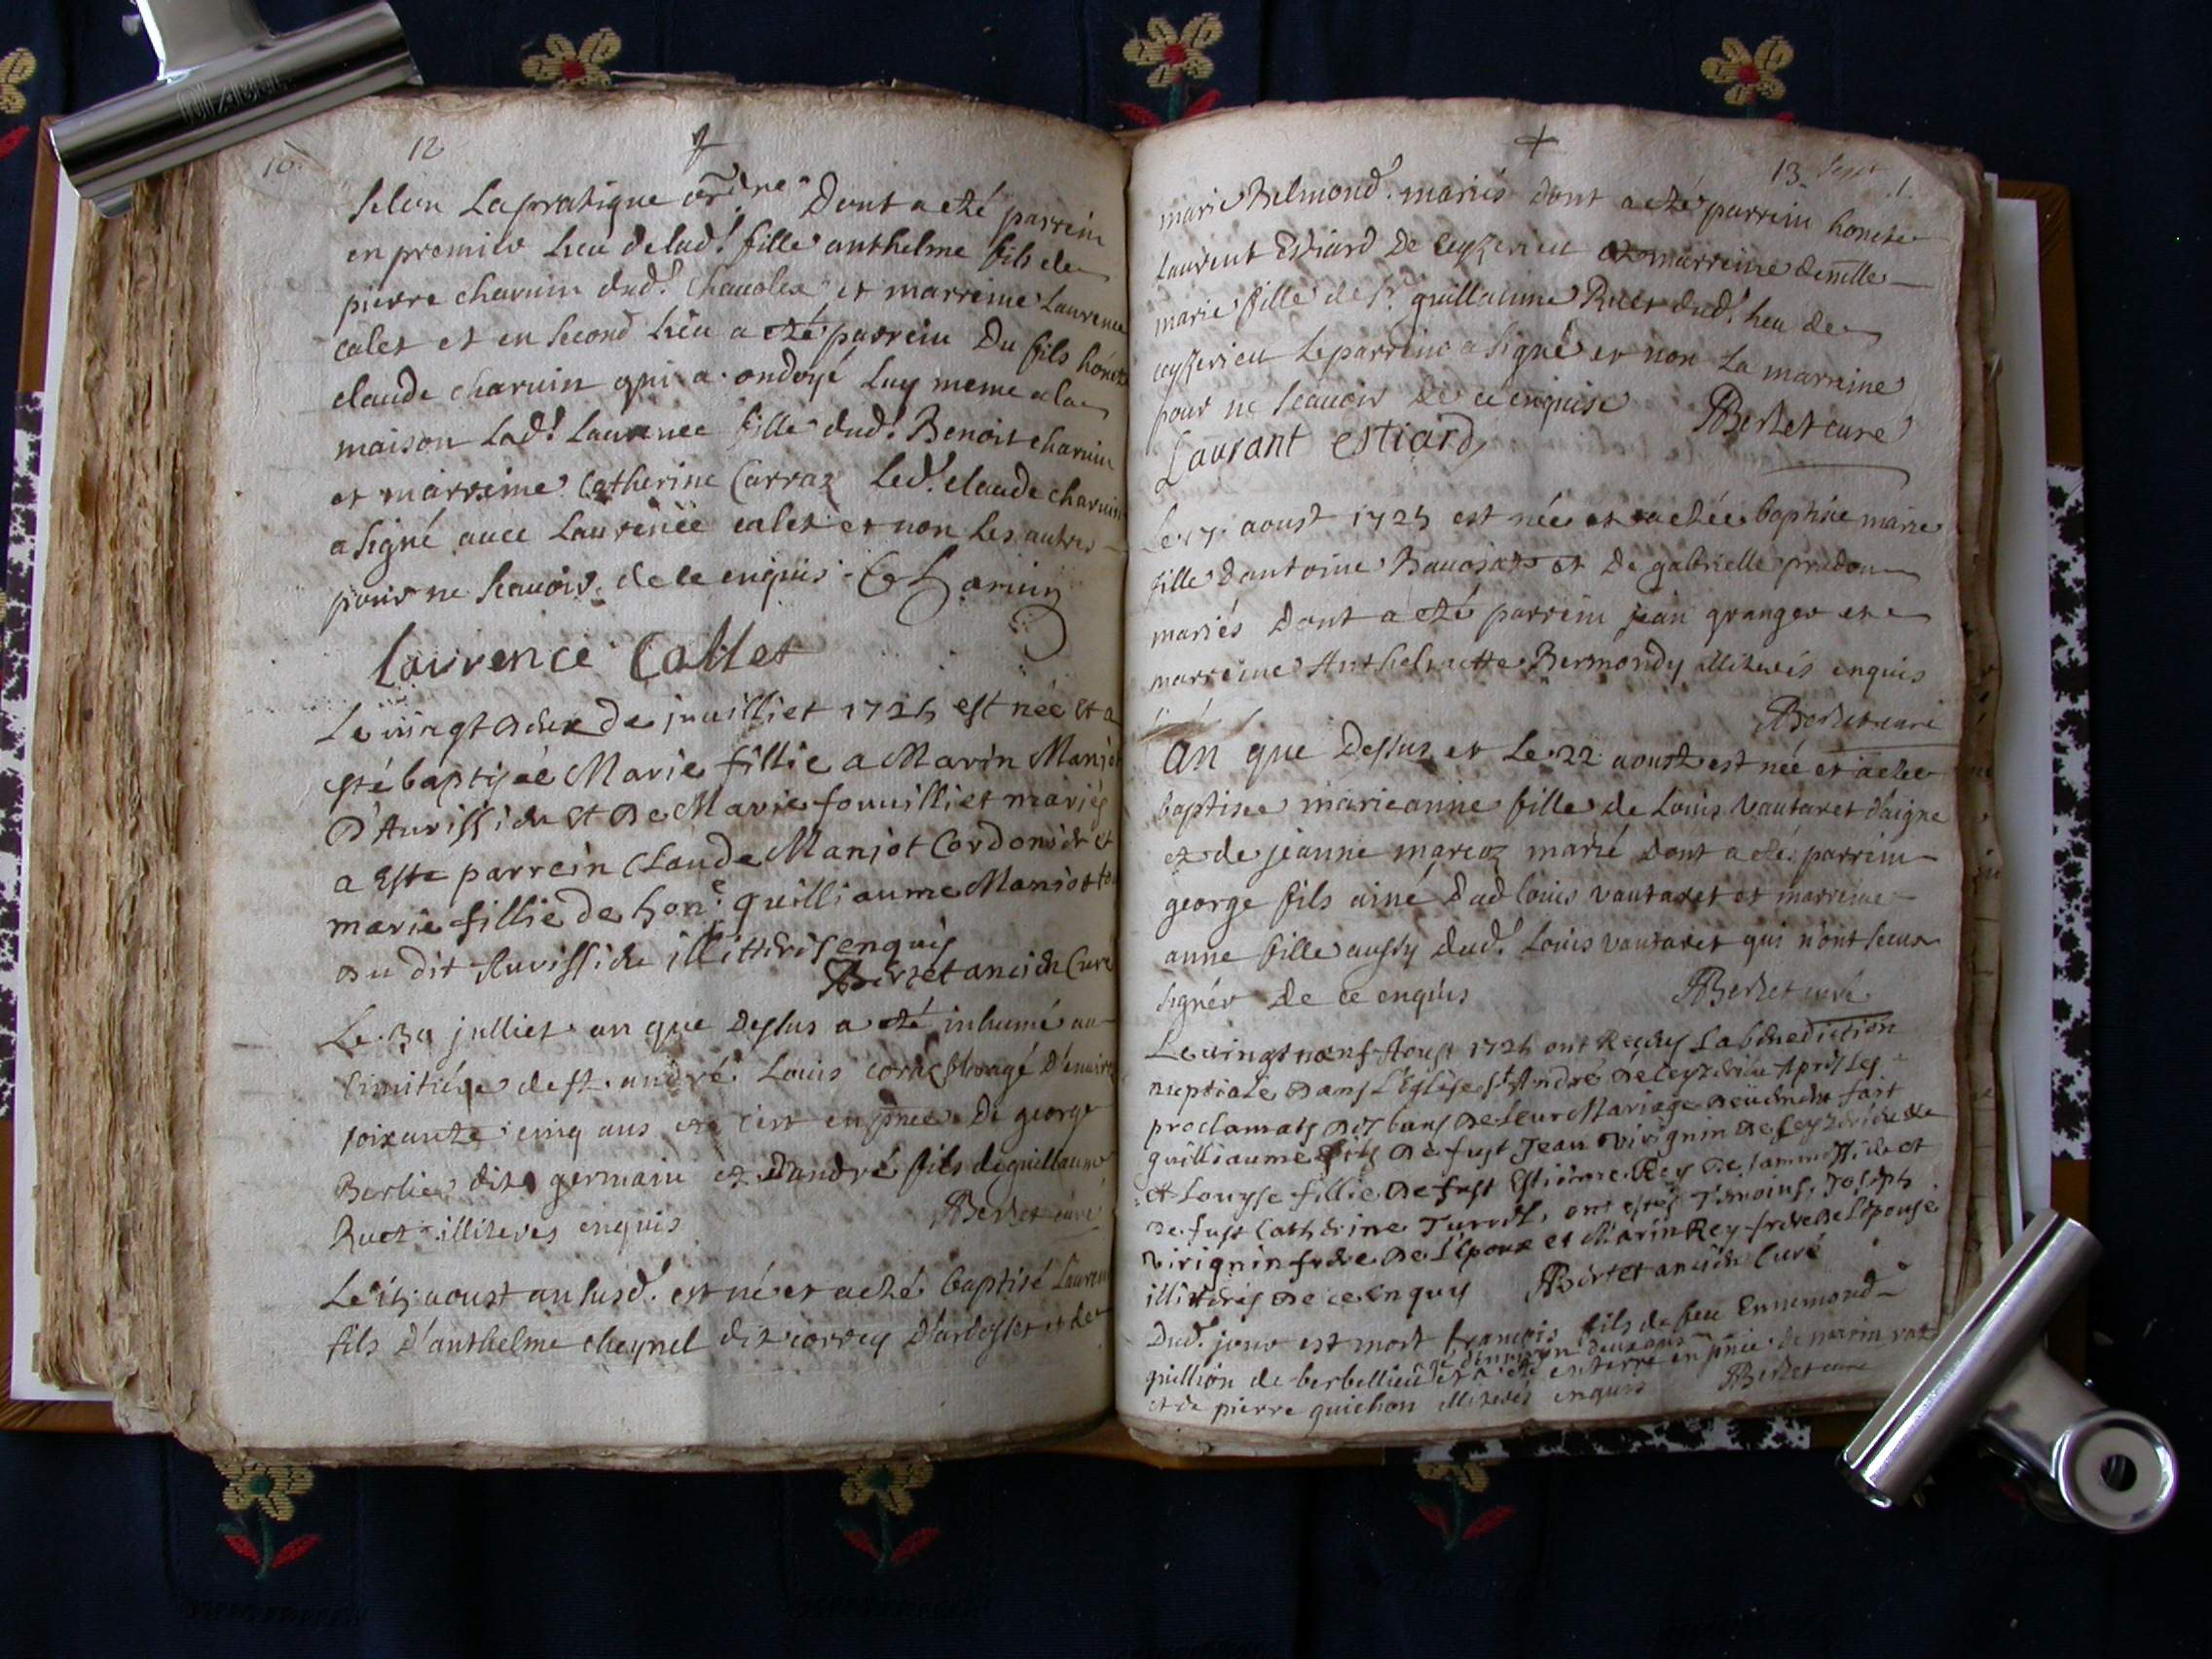 12
Selon La pratique ord.re Dont a eté parrein
en premier Lieu de lad.e fille anthelme fils de
pierre charuin dud.t et marreine Laurence
calet et en second Lieu a eté parrein Du fils
claude charuin qui a ondoyé Luy meme a la
maison Lad.e Laurence fille dud.t Benoit charuin
et marreine Catherine Carraz Led.t claude charuin
a signé auec Laurence calet et non Les autres
pour ne scauoir de ce enquis C Charuin
Laurence Callet
Le vingt deux de juilliet 1725 est née et a
esté baptisée Marie fillie a Marin Manjot
D'Auissieu et de Marie fouuilliet mariés
a este parrein Claude Manjot Cordonier et
marie fillie de hon.e guilliaume Manjot
du dit illitterés enquis
Berzet ancien Curé
Le 30 julliet an que Dessus a eté inhumé au
Cimitiére de st. andré Louis agé D'enuiron
soixante cinq ans en pnce De george
Berlier dit germain et D'andré fils de guillaume
Ruet illiterés enquis Berzet curé
Le 15 aoust an susd.t est né et a eté baptisé Laurent
fils D'anthelme cheynel dit correy et de
13
marie Belmond mariés dont a eté parrein honeste
Laurent Estiard De Ceyzerieu et marreine demlle
marie fille de Sr guillaume Ruet dud.t lieu de
ceyzerieu Le parrein a signé et non La marraine
pour ne scauoir de ce enquise Berzet curé
Laurant estiard
Le 17 aoust 1725 est née et a etée baptisée marie
fille D'antoine et De gabrielle prudon
mariés Dont a eté parrein jean granger et
marreine Anthelmette Bermondy illiterés enquis
Berzet curé
An que Dessus et Le 22 aoust est née et a etée
baptisée marieanne fille de Louis Vautaret d'aigne
et de jeanne marcoz marié Dont a eté parrein
george fils ainé Dud Louis vautaret et marreine
anne fille aussy dud.t Louis vautaret qui n'ont sceu
signer De ce enquis Berzet curé
Le vingt neuf Aoust 1725 ont Reçeu La benediction
nuptiale Dans L'Eglise st André de Ceyzerieu Apres les
proclamats des bans de leur Mariage deüement fait
guilliaume fils de fust Jean Virignin de Ceyzerieu
et Louyse fillie de fust Estienne Rey de et
de fust Catherine ont estés Temoins, Joseph
Virignin frere de L'Epoux et Marin Rey frere de L'epouse
illitterés de ce Enquis Berzet ancien Curé
Dud.t jour est mort francois fils de feu Ennemond
guillion de berbellieu agé denuiron deux ans et a eté enterré en pnce de marin
et de pierre guichon illiterés enquis Berzet curé